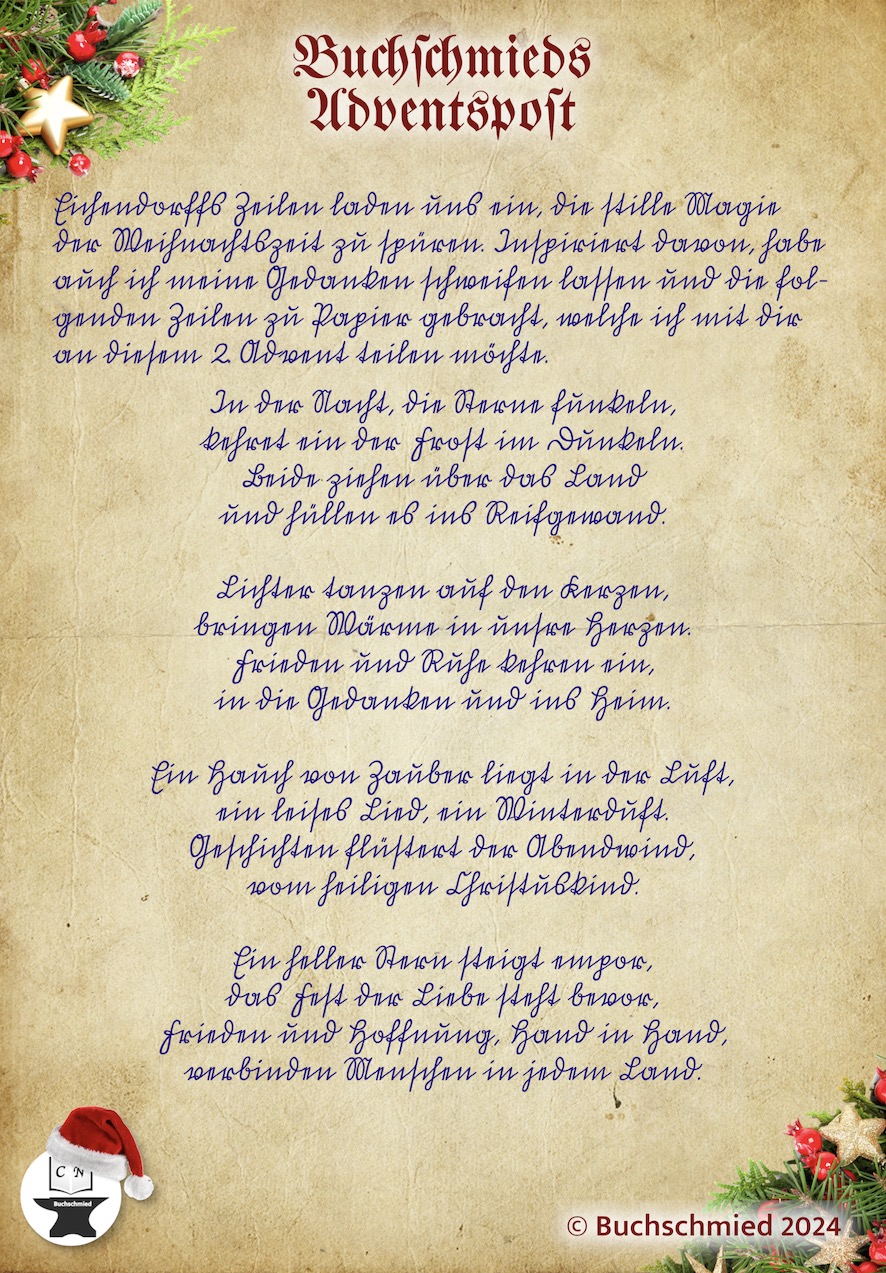 Buchschmieds
Adventspost
Eichendorffs Zeilen laden uns ein, die stille Magie
der Weihnachtszeit zu spüren. Inspiriert davon, habe
auch ich meine Gedanken schweifen lassen und die fol-
genden Zeilen zu Papier gebracht, welche ich mit dir
an diesem 2. Advent teilen möchte.
In der Nacht, die Sterne funkeln,
kehret ein der Frost im Dunkeln.
Beide ziehen über das Land
und hüllen es ins Reifgewand.
Lichter tanzen auf den Kerzen,
bringen Wärme in unsre Herzen.
Frieden und Ruhe kehren ein,
in die Gedanken und ins Heim.
Ein Hauch von Zauber liegt in der Luft,
ein leises Lied, ein Winterduft.
Geschichten flüstert der Abendwind,
vom heiligen Christuskind.
Ein heller Stern steigt empor,
das Fest der Liebe steht bevor,
Frieden und Hoffnung, Hand in Hand,
verbinden Menschen in jedem Land.
C N
Buchschmied
© Buchschmied 2024